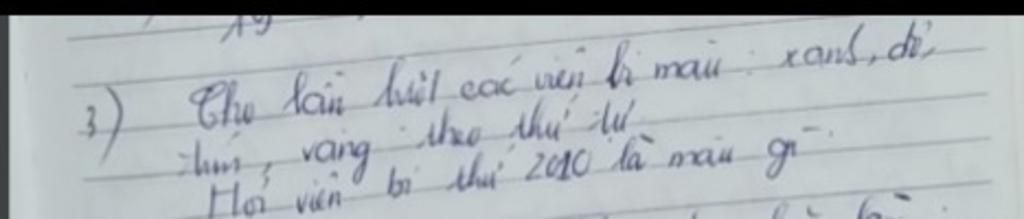 3) Cho lần lượt các viên bi màu: xanh, đỏ,
tím, vàng theo thứ tự
Hỏi viên bi thứ 2010 là màu gì